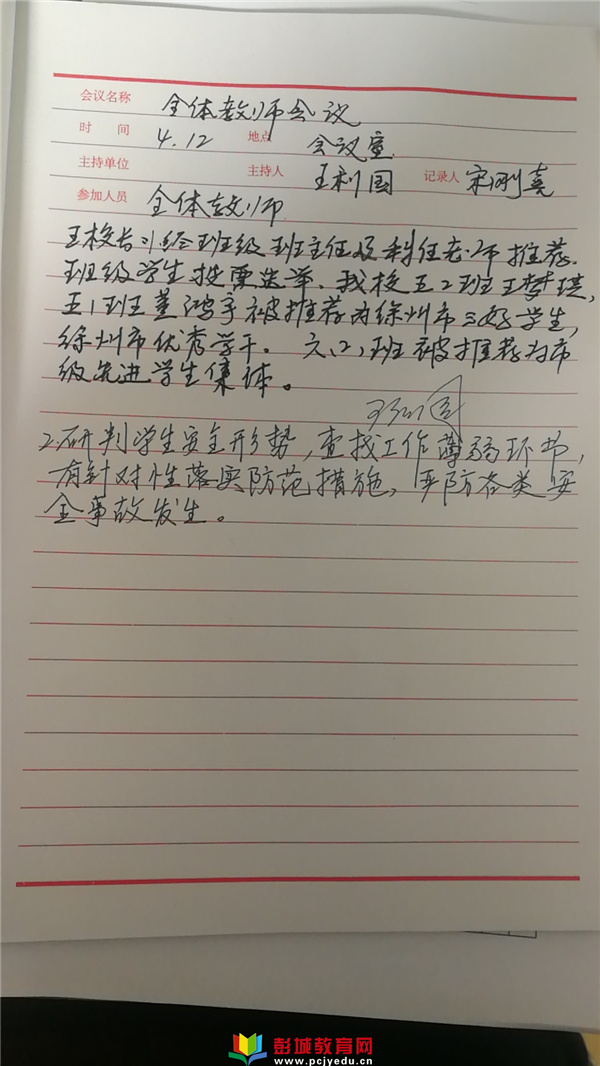 会议名称 全体教师会议
时 间 4.12 地点 会议室
主持单位 主持人 王利国 记录人 宋刚喜
参加人员 全体教师
王校长:1.经班级班主任及科任老师推荐.
班级学生投票选举.我校五2班王梦琪,
五1班董鸿宇被推荐为徐州市三好学生,
徐州市优秀学干。六(2)班被推荐为市
级先进学生集体。
2.研判学生安全形势,查找工作薄弱环节,
有针对性落实防范措施,严防各类安
全事故发生。
彭城教育网
www.pcjyedu.cn